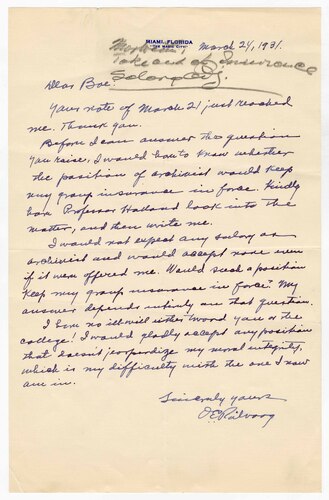 MIAMI, FLORIDA
"THE MAGIC CITY"
March 24, 1931.
Take out of Insurance
Salary
Dear Boe:
Yours note of March 21 just reached
me. Thank you.
Before I can answer the question
you raise, I would have to know whether
the position of archivist would keep
my group insurance in force. Kindly
have Professor Holland look into the
matter, and then write me.
I would not expect any salary as
archivist and would accept none even
if it were offered me. Would such a position
keep my group insurance in force? My
answer depends entirely on that question.
I have no ill will either toward you or the
college! I would gladly accept any position
that doesn't jeopardize my moral integrity,
which is my difficulty with the one I now
am in.
Sincerely yours
O E Rölvaag